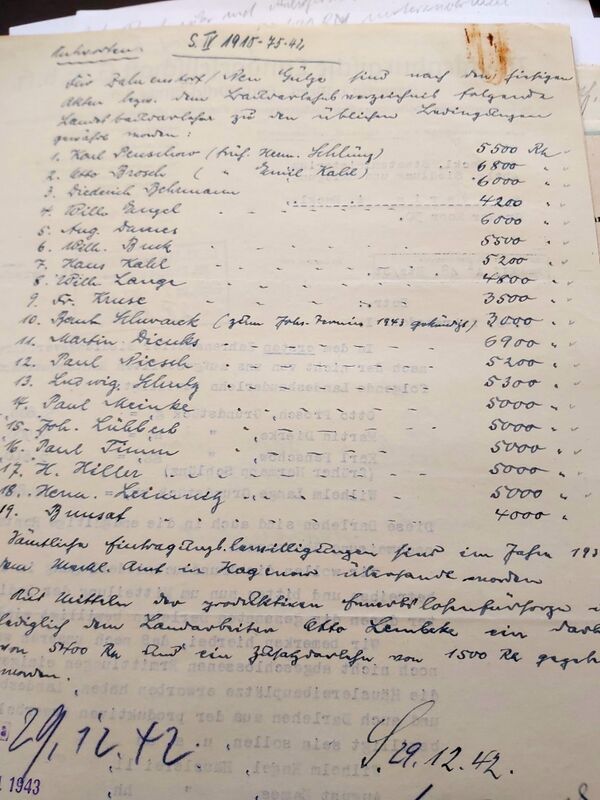 Antworten S. IV 1910-75-42
Für Dahmstorf/Neu Gülze sind nach den hiesigen
Akten bezw. dem Baudarlehnsverzeichnis folgende
Landesbaudarlehn zu den üblichen Bedingungen
gewährt worden:
1. Karl Penschow (früh. Herm. Schlüng) 5500 RM
2. Otto Brosch ( " Emil Kahl) 6800 " "
3. Diederich Behrmann 6000 " "
4. Wilh. Engel - - - 4200 " "
5. Aug. Dames 6000 " "
6. Wilh. Buck - - - - - 5500 " "
7. Hans Kahl - - - - - 5200 " "
8. Wilh. Lange - - - - - 4800 " "
9. Fr. Kruse - - - - - 3500 " "
10. Schwarck (zum Johs. Termin 1943 gekündigt) 3000 " "
11. Martin Dierks - - - - 6900 " "
12. Paul Niesch - - - - 5200 " "
13. Ludwig Schulz - - - - 5300 " "
14. Paul Meinke - - - - 5000 " "
15. Joh. Lübbert - - - - 5000 " "
16. Paul Timm - - - - 5000 " "
17. H. Hiller - - - - 5000 " "
18. Herm. - - - - 5000 " "
19. - - - - 4000 " "
Sämtliche Eintragungsbewilligungen sind im Jahre 193
dem Meckl. Amt in Hagenow übersandt worden
Aus Mitteln der produktiven Erwerbslosenfürsorge
lediglich dem Landarbeiter Otto Lembcke ein Darl
von 5400 RM und ein Zusatzdarlehn von 1500 RM gegeb
worden.
29.12.42 S. 29.12.42.
1943